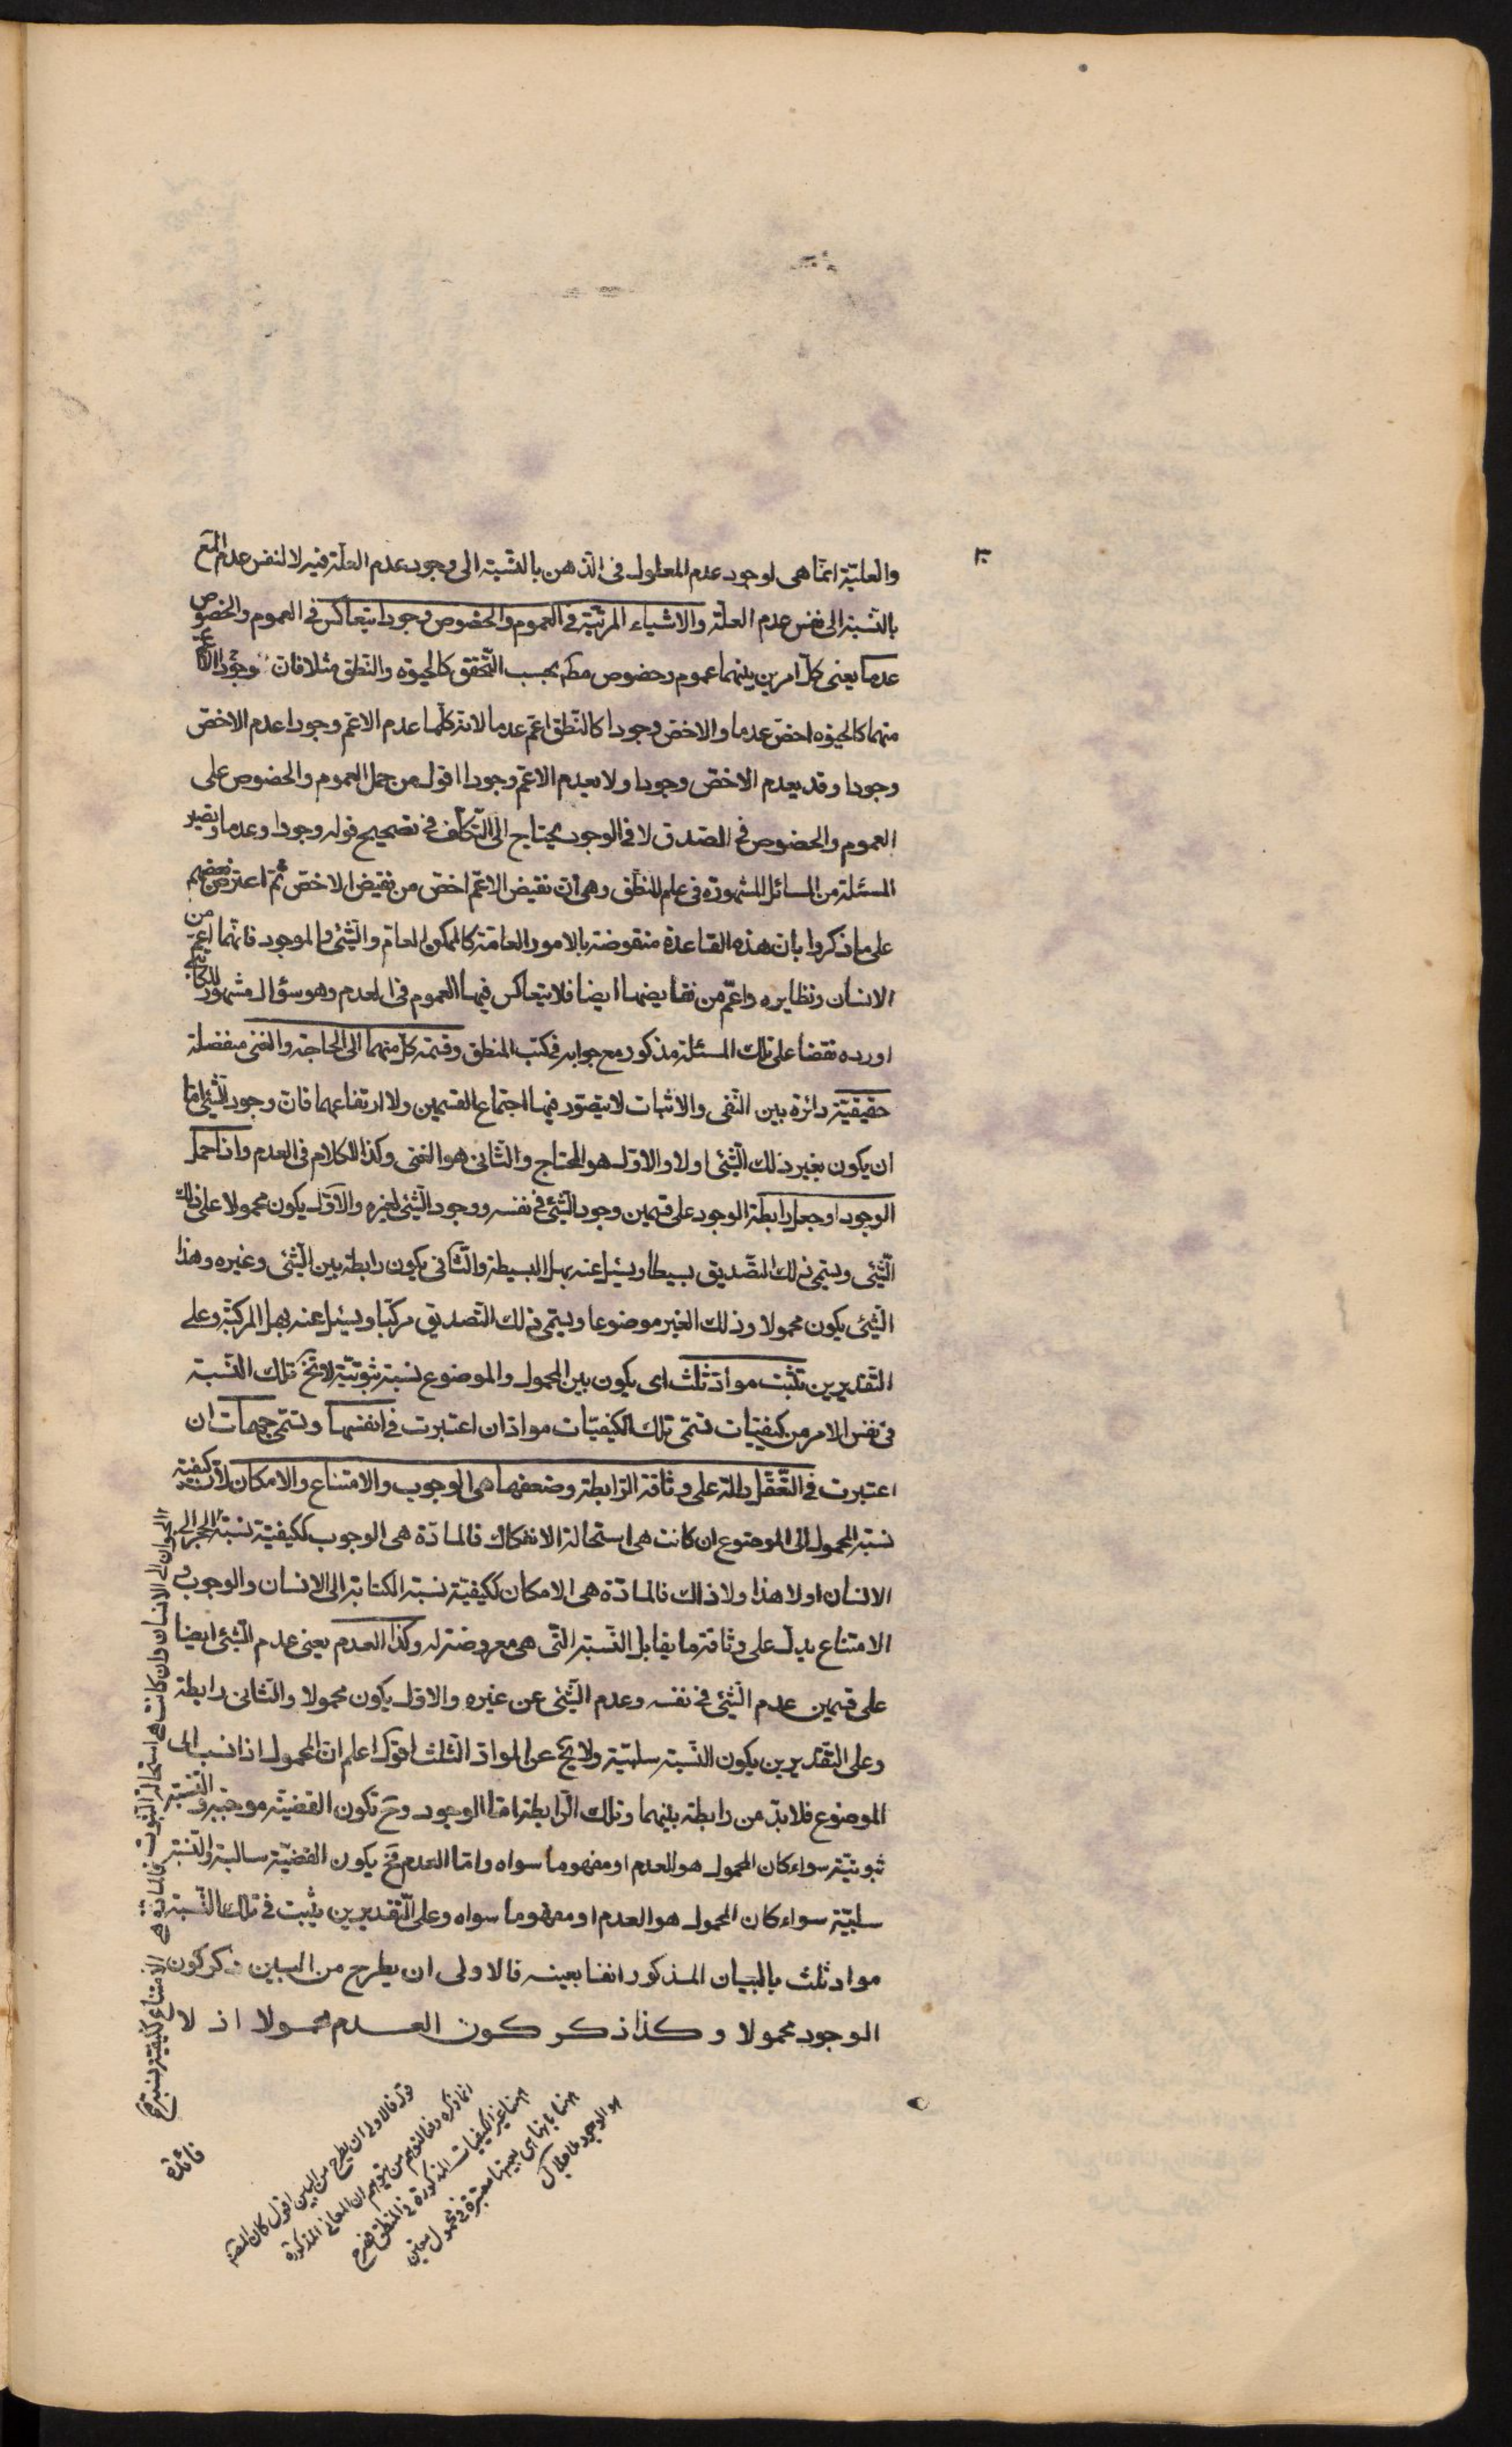 والعلية انما هى لوجود عدم المعلول فى الذهن بالنسبة الى وجود عدم العلة فيه لا لنفس عدم المع
بالنسبة الى نفس عدم العلة والاشياء المرتبة فى العموم والخصوص وجودا يتعاكس فى العموم والخصوص
عدما يعنى كل امرين بينهما عموم وخصوص مطم بحسب التحقق كالحيوة والنطق مثلا فان وجود الاعم
منهما كالحيوة اخص عدما والاخص وجودا كالنطق اعم عدما لانه كلما عدم الاعم وجودا عدم الاخص
وجودا وقد يعدم الاخص وجودا ولا يعدم الاعم وجودا اقول من حمل العموم والخصوص على
العموم والخصوص فى الصدق لا فى الوجود يحتاج الى التكلف فى تصحيح قوله وجودا وعدما ويصير
المسئلة من المسائل المشهورة فى علم المنطق وهى ان نقيض الاعم اخص من نقيض الاخص ثم اعترض بعضهم
على ما ذكروا بان هذه القاعدة منقوضة بالامور العامة كالممكن العام والشئ والموجود فانها اعم من
الانسان ونظايره واعم من نقايضها ايضا فلا يتعاكس فيها العموم فى العدم وهو سؤال مشهور للكاتبى
اورده نقضا على تلك المسئلة مذكور مع جوابه فى كتب المنطق وقسمة كل منهما الى الحاجة والغنى منفصلة
حقيقية دائرة بين النفى والاثبات لا يتصور فيها اجتماع القسمين ولا ارتفاعهما فان وجود الشئ اما
ان يكون بغير ذلك الشئ اولا والاول هو المحتاج والثانى هو الغنى وكذا الكلام فى العدم واذا حمل
الوجود او جعل رابطة الوجود على قسمين وجود الشئ فى نفسه ووجود الشئ لغيره والاول يكون محمولا على ذلك
الشئ ويسمى ذلك التصديق بسيطا ويسئل عنه بهل البسيطة والثانى يكون رابطة بين الشئ وغيره وهذا
الشئ يكون محمولا وذلك الغير موضوعا ويسمى ذلك التصديق مركبا ويسئل عنه بهل المركبة وعلى
التقديرين تثبت مواد ثلث اى يكون بين المحمول والموضوع نسبة ثبوتية لا تخ تلك النسبة
فى نفس الامر من كيفيات تسمى تلك الكيفيات مواد ان اعتبرت فى انفسها وتسمى جهات ان
اعتبرت فى التعقل دالة على وثاقة الرابطة وضعفها هى الوجوب والامتناع والامكان لان كيفية
نسبة المحمول الى الموضوع ان كانت هى استحالة الانفكاك فالمادة هى الوجوب ككيفية نسبة
الحيوان الى الانسان وان كانت هى استحالة الثبوت فالمادة هى الامتناع ككيفية نسبة
الحجر الى
الانسان او لا هذا ولا ذاك فالمادة هى الامكان ككيفية نسبة الكتابة الى الانسان والوجوب و
الامتناع يدل على وثاقة ما يقابل النسبة التى هى معروضة له وكذا العدم يعنى عدم الشئ ايضا
على قسمين عدم الشئ فى نفسه وعدم الشئ عن غيره والاول يكون محمولا والثانى رابطة
وعلى التقديرين يكون النسبة سلبية ولا يخ عن المواد الثلث اقول اعلم ان المحمول اذا نسب الى
الموضوع فلا بد من رابطة بينهما وتلك الرابطة اما الوجود وح تكون القضية موجبة والنسبة
ثبوتية سواء كان المحمول هو العدم او مفهوما سواه واما العدم فح يكون القضية سالبة والنسبة
سلبية سواء كان المحمول هو العدم او مفهوما سواه وعلى التقديرين يثبت فى تلك النسبة
مواد ثلث بالبيان المذكور انفا بعينه فالاولى ان يطرح من البين ذكر كون
الوجود محمولا وكذا ذكر كون العدم محمولا اذ لا
فائدة
قوله فالاولى ان يطرح من البين اقول كان المصـ
انما ذكره دفعا لتوهم من يتوهم ان المعانى المذكورة
ههنا غير الكيفيات المذكورة فى المنطق فصرح
ههنا بانها هى بعينها معتبرة فى محمول معين
هو الوجود